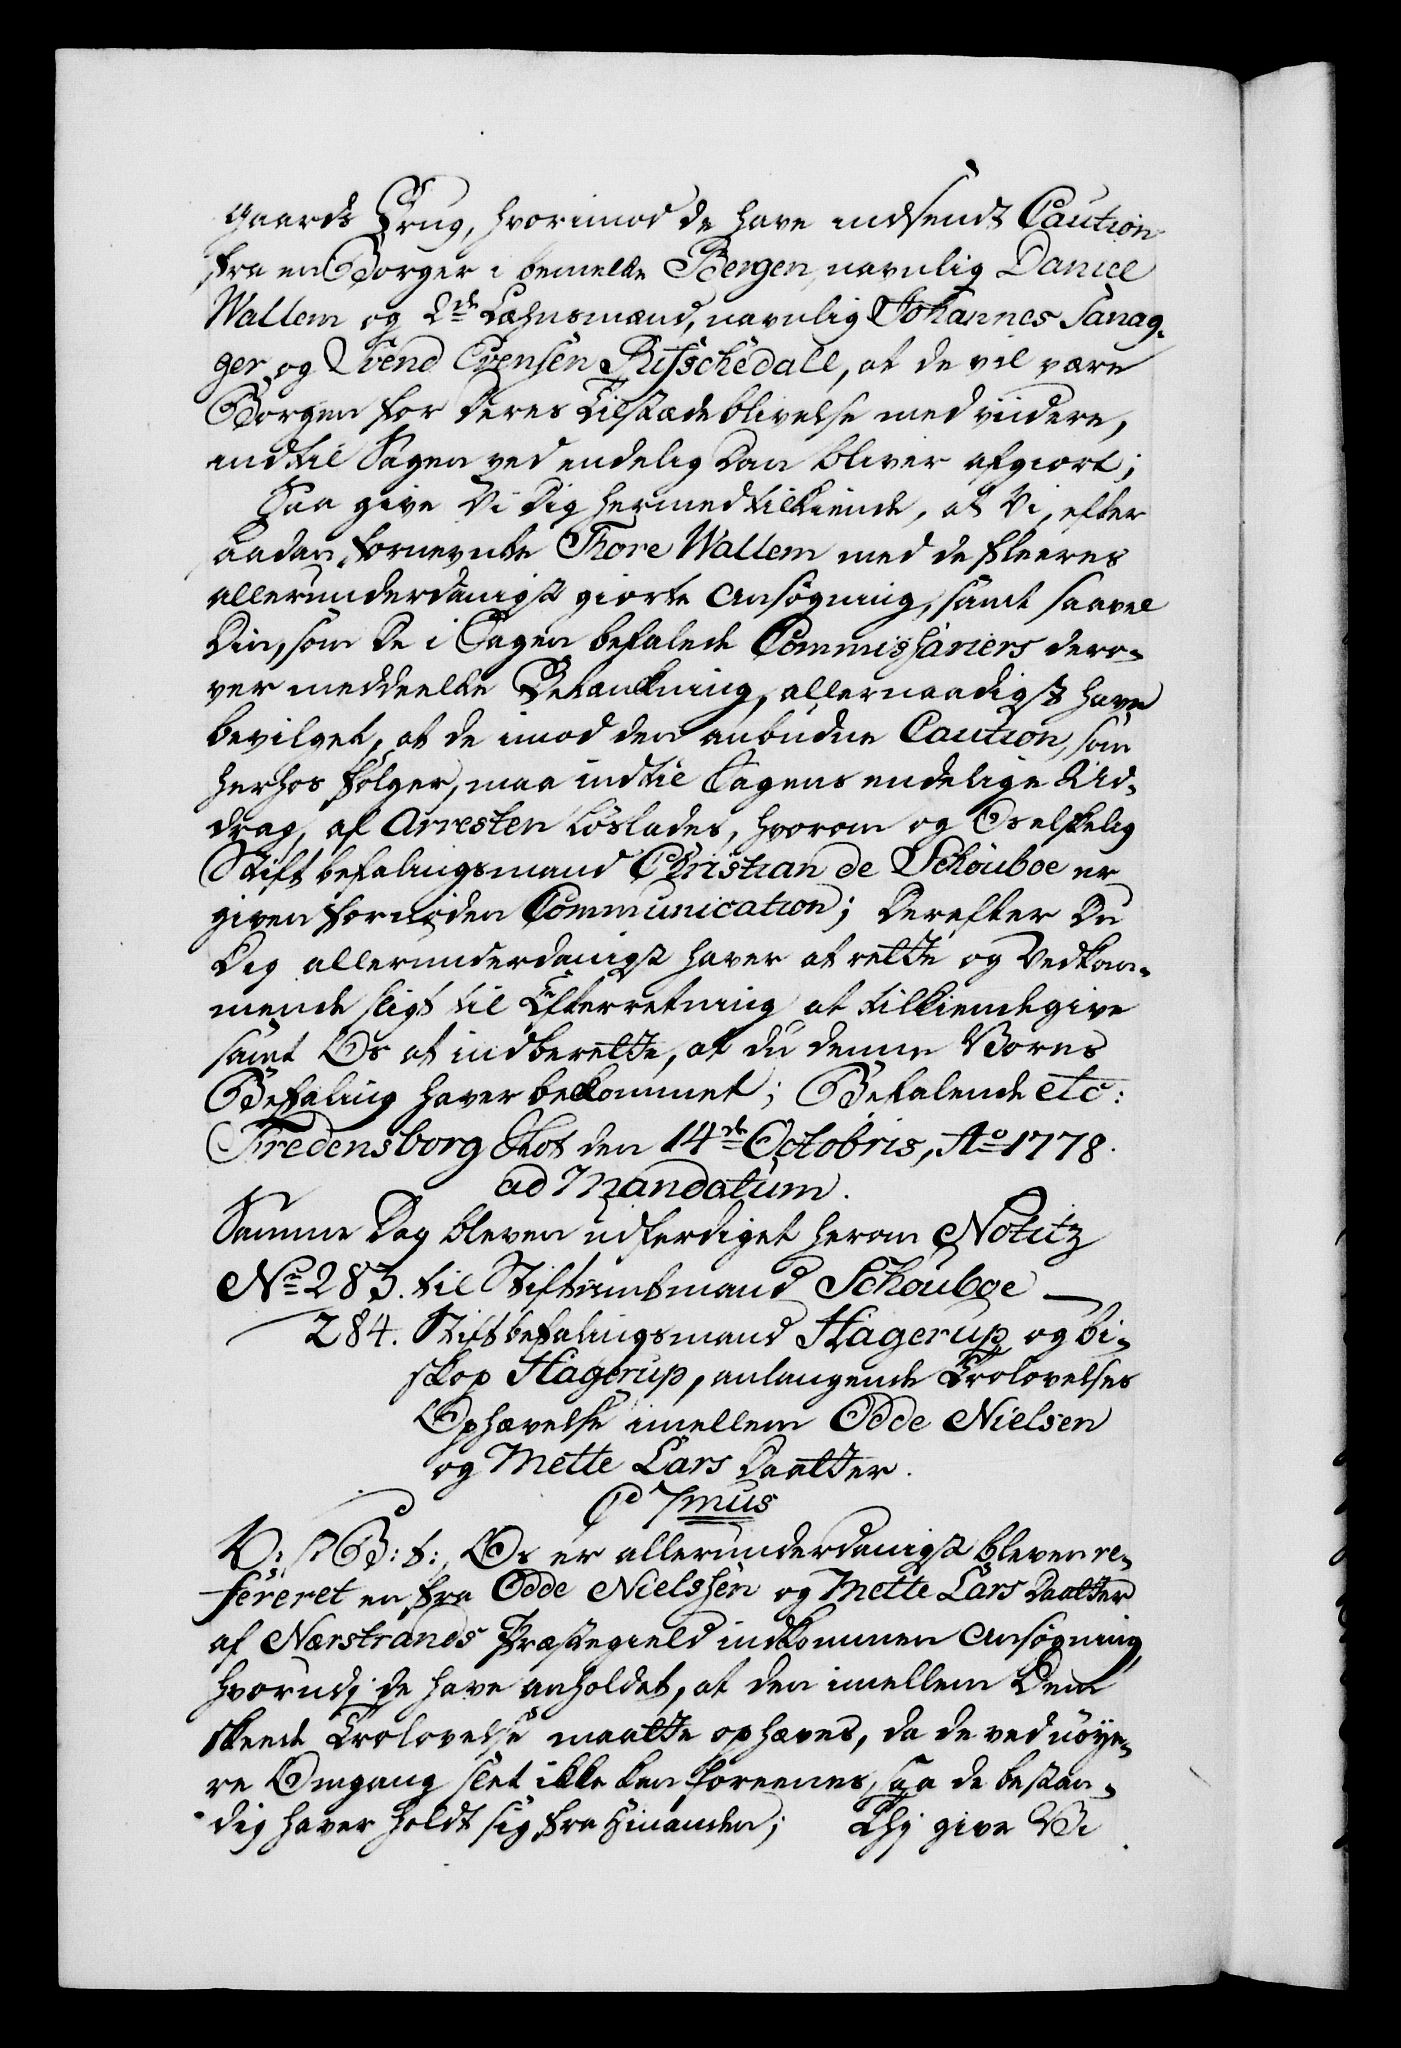 gaards Brug, hvorimod de have indsendt Caution
fra en Borger i bemelte Bergen, navnlig Daniel
Wallem og 2de Lehnsmænd, navnlig Johannes Sanag-
ger og Svend Evensen Risschedall, at de vil være
Borgen for deres Tilstædeblivelse med viidere,
indtil Sagen ved endelig Dom bliver afgiort;
Saa give Vi Dig hermed tilkiende, at Vi, efter
saadan fornevnte Thore Wallem med de fleeres
allerunderdanigst giorte Ansøgning, samt saavel
Din, som De i Sagen befalede Commissariers dero-
ver meddeelte Betænkning, allernaadigst have
bevilget, at de imod den anbudne Caution, som
herhos følger, maa indtil Sagens endelige Ud-
drag, af Arresten løslades, hvorom og Os elskelig
Stiftbefalingsmand Christian de Schouboe er
given fornøden Communication; Derefter Du
Dig allerunderdanigst haver at rette og Vedkom-
mende sligt til Efterretning at tilkiendegive
samt Os at indberette, at du denne Vores
Befaling haver bekommet; Befalende etc:
Fredensborg Slot den 14de Octobris, Ao 1778.
ad Mandatum.
Samme Dag bleven udferdiget herom Notitz
No 283. til Stiftamtmand Schouboe
284. Stiftbefalingsmand Hagerup og Bi-
skop Hagerup, anlangende Trolovelses
Ophævelse imellem Odde Nielsen
og Mette Lars Daatter.
C 7mus
V: s: G: t:, Os er allerunderdanigst bleven re-
fereret en fra Odde Nielssen og Mette Lars Daatter
af Nærstrands Præstegield indkommen Ansøgning,
hvorudj de have anholdet, at den imellem Dem
skeede Trolovelse maatte ophæves, da de ved nøye-
re Omgang slet ikke kan foreenes, saa de bestan-
dig haver holdt sig fra hinanden; Thj give Vi